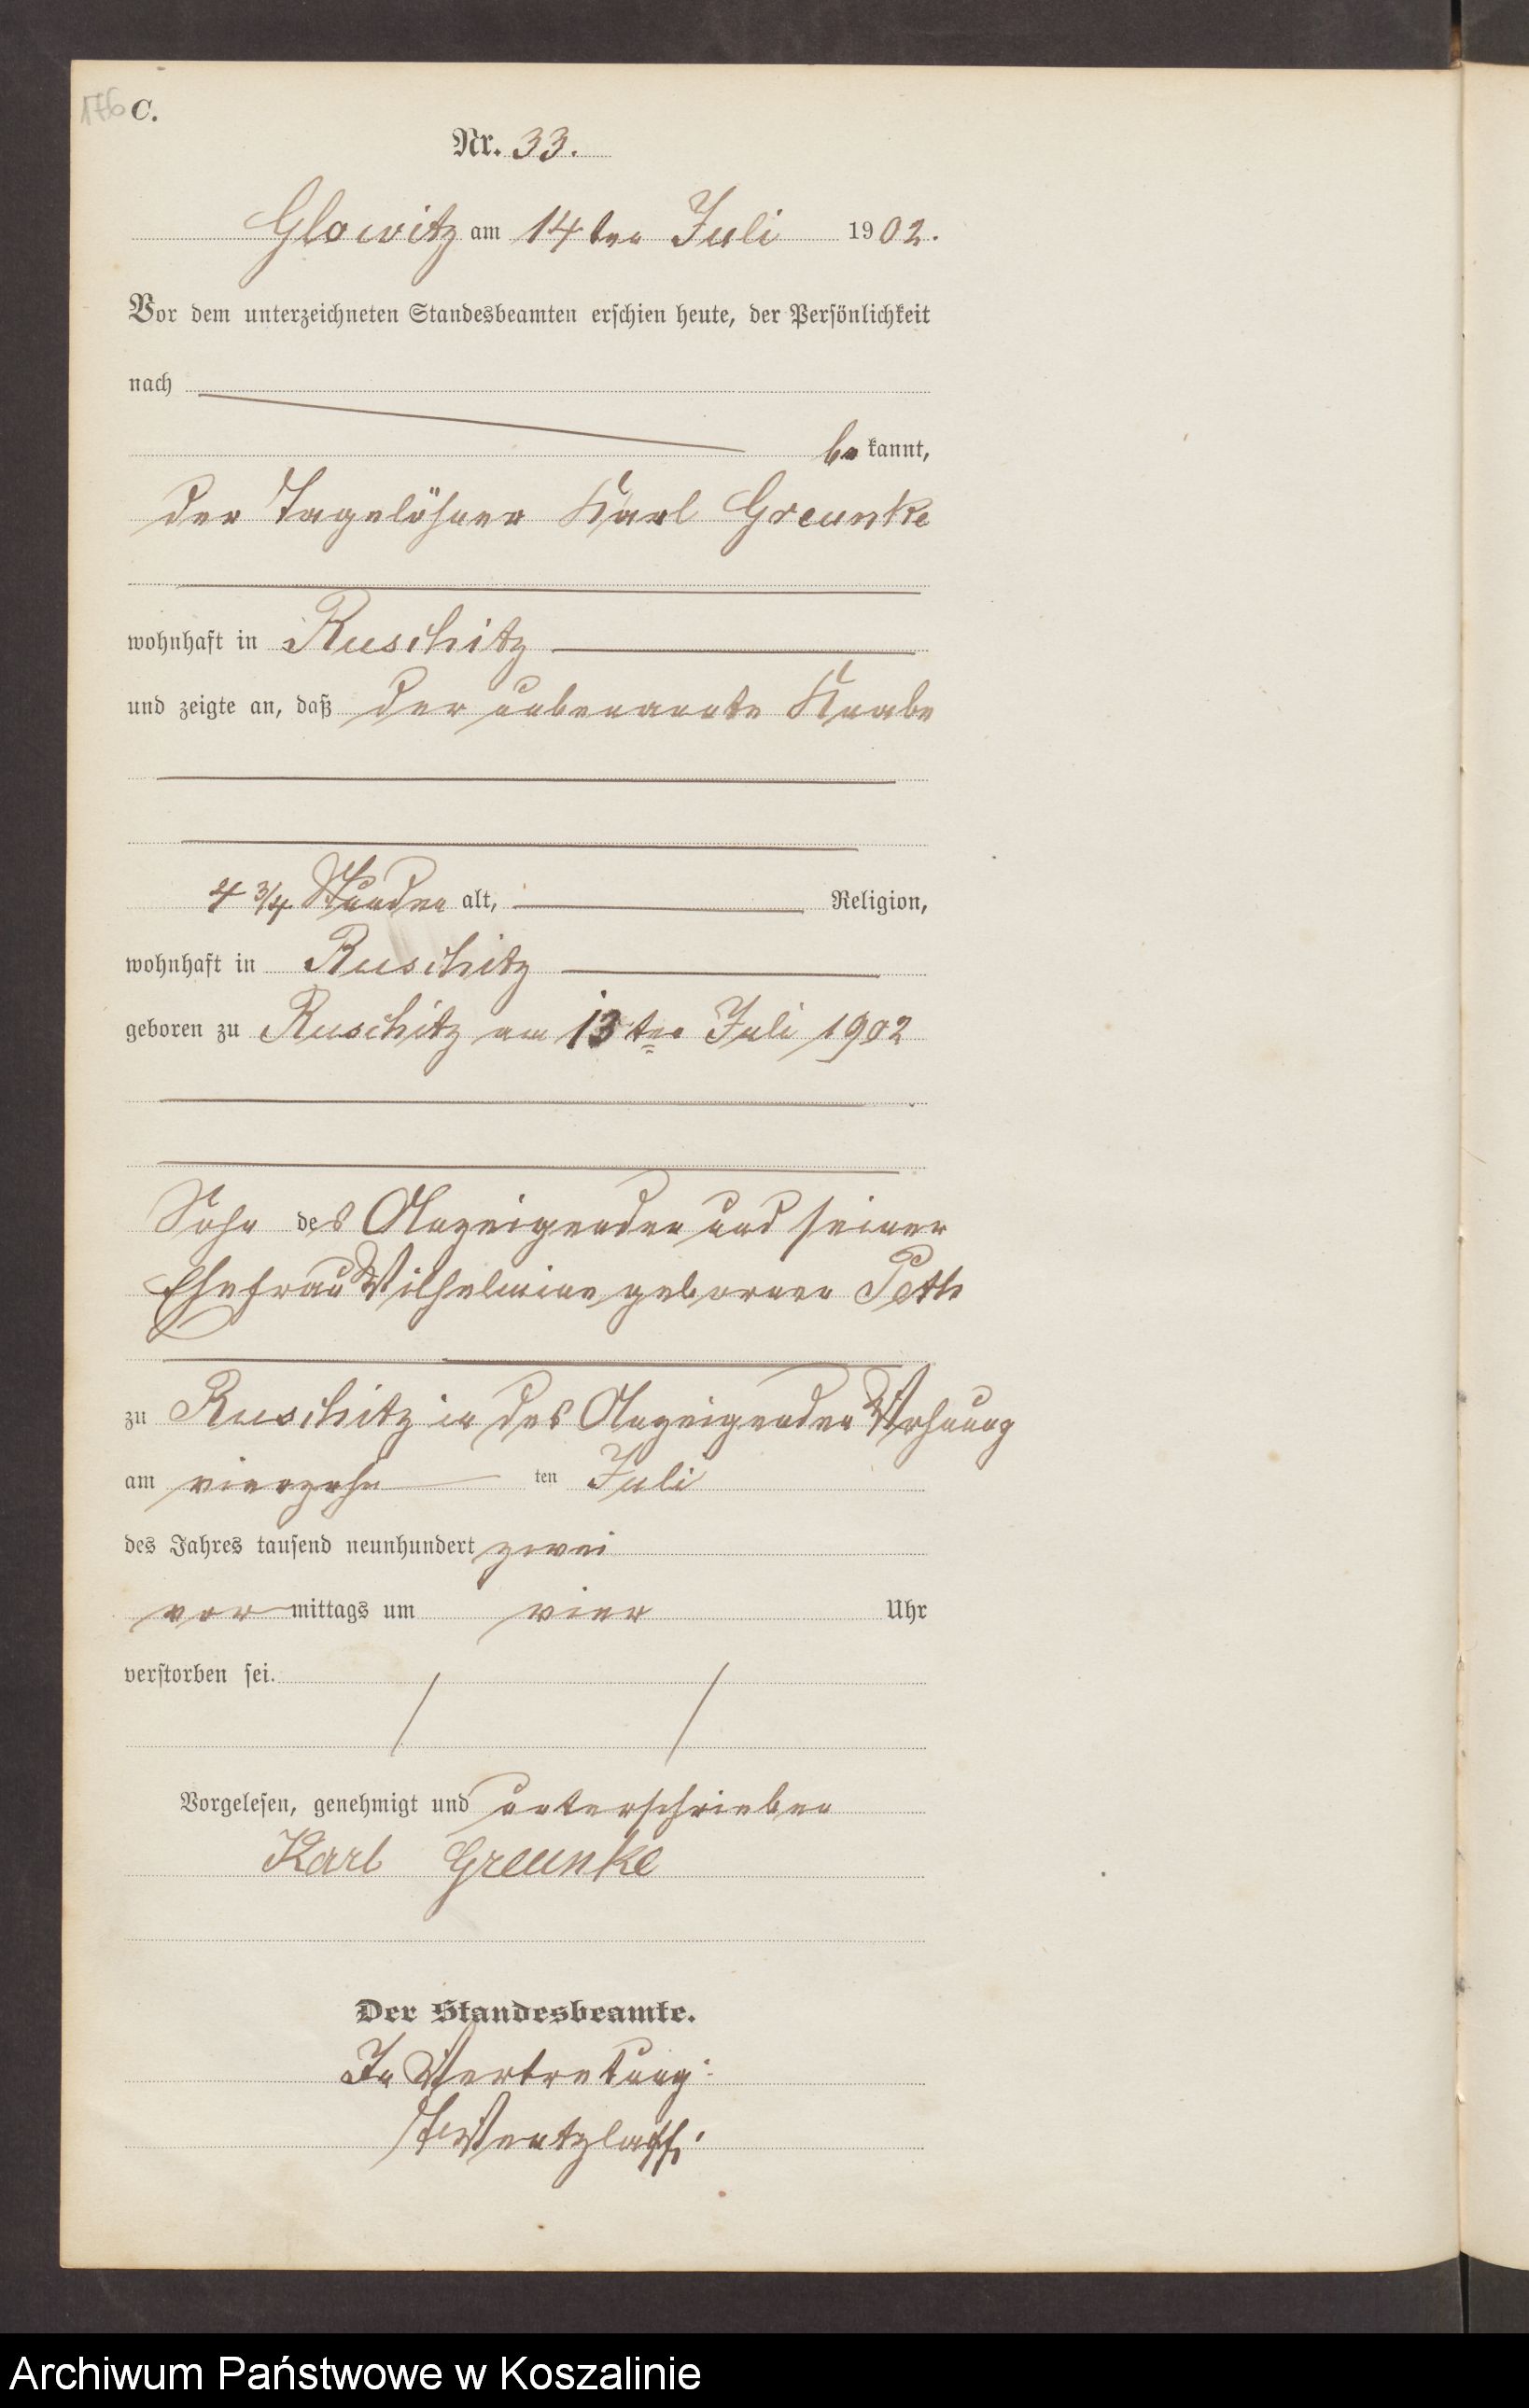 176 C.
Nr. 33.
Glowitz am 14ten Juli 1902.
Vor dem unterzeichneten Standesbeamten erschien heute, der Persönlichkeit
nach
bekannt,
der Tagelöhner Karl Greunke
wohnhaft in Ruschitz
und zeigte an, daß der unbenannte Knabe
4 3/4 Stunden alt, Religion,
wohnhaft in Ruschitz
geboren zu Ruschitz am 13ten Juli 1902
Sohn des Anzeigenden und seiner
Ehefrau Wilhelmine geborenen Peth
zu Ruschitz in des Anzeigenden Wohnung
am vierzehn ten Juli
des Jahres tausend neunhundert zwei
vor mittags um vier Uhr
verstorben sei.
Vorgelesen, genehmigt und unterschrieben
Karl Greunke
Der Standesbeamte.
In Vertretung:
Wentzlaff.
Archiwum Państwowe w Koszalinie